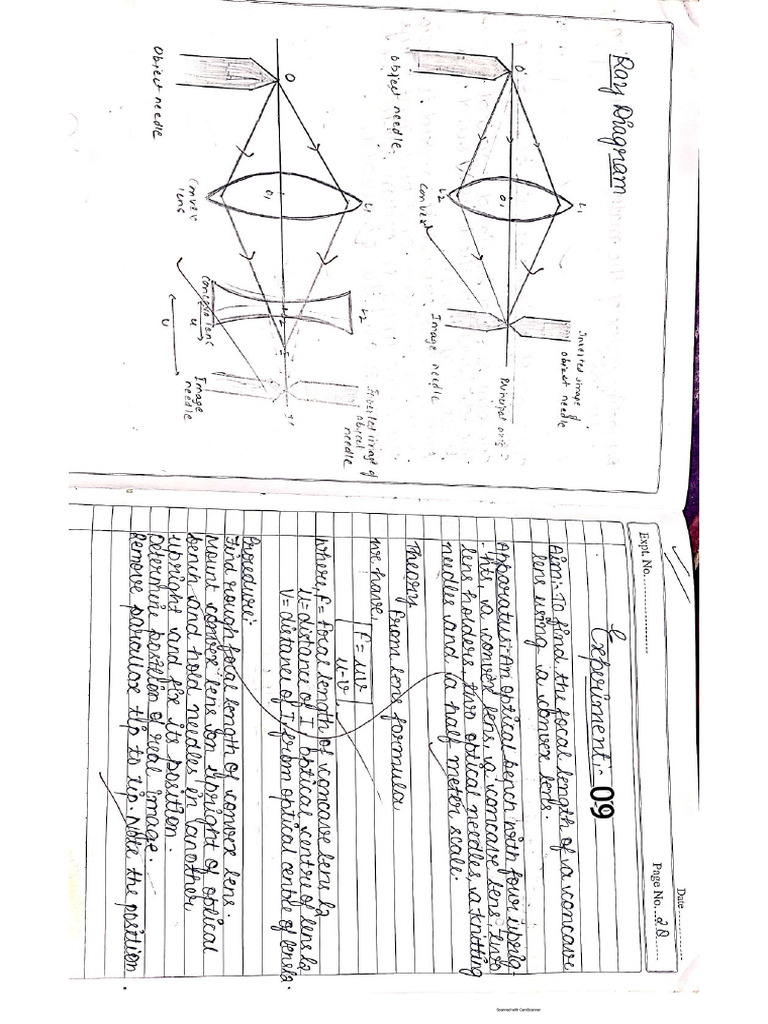 Ray Diagram
O
Object needle.
L1
O1
L2
convex
Inverted image of
object needle
Image needle
Principal axis
O
Object needle
L1
O1
convex
lens
L2
concave lens
u
v
I'
Inverted image of
object
needle
Image
needle
Date
Expt. No.
Page No. 28
Experiment:- 09
Aim:- To find the focal length of a concave
lens using a convex lens.
Apparatus:- An optical bench with four uprig-
-hts, a convex lens, a concave lens, two
lens holders, two optical needles, a knitting
needles and a half meter scale.
Theory
From lens formula
we have,
f = uv
u-v
where, f = focal length of concave lens L2
u = distance of I optical centre of lens L2
v = distance of I, from optical centre of lens L2.
Procedure:
Find rough focal length of convex lens.
Mount convex lens on upright of optical
bench and hold needles in another
upright and fix its position.
Determin position of real image.
Remove parallax tip to tip. Note the position
Scanned with CamScanner